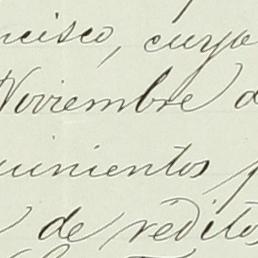 ncisco, cuya
Noviembre d
uinientos p
de réditos